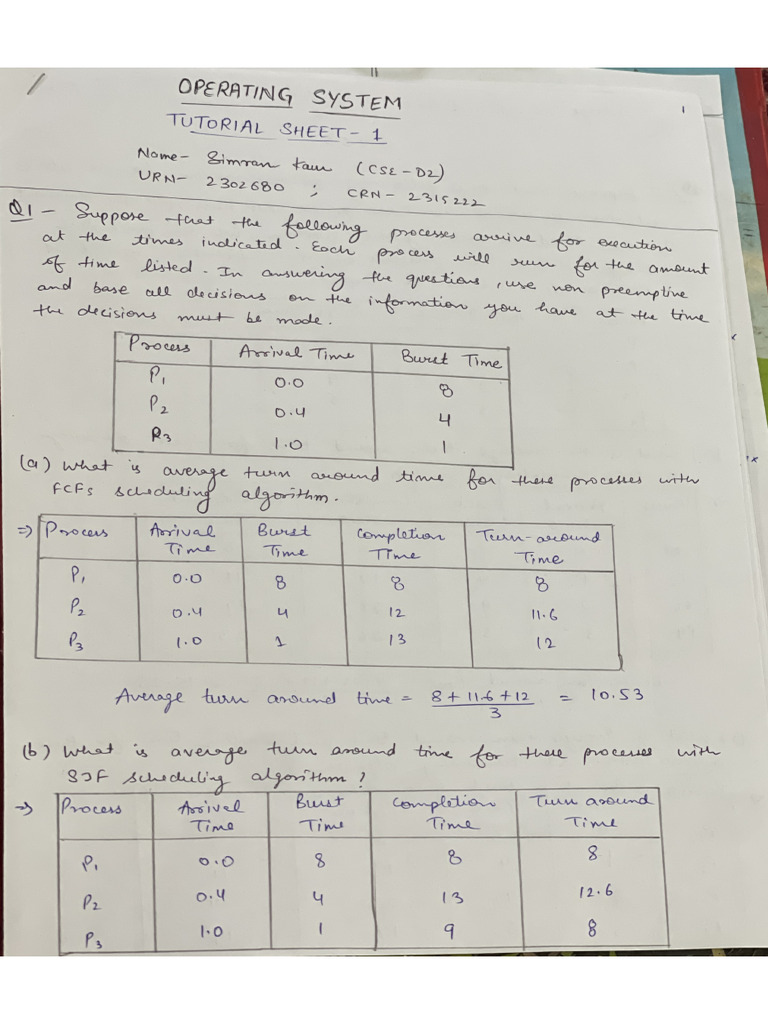 1
OPERATING SYSTEM
TUTORIAL SHEET - 1
Name - Simran Kaur (CSE - D2)
URN - 2302680 ; CRN - 2315222
Q1 - Suppose that the following processes arrive for execution
at the times indicated. Each process will run for the amount
of time listed. In answering the questions, use non preemptive
and base all decisions on the information you have at the time
the decisions must be made.
Process Arrival Time Burst Time
P1 0.0 8
P2 0.4 4
P3 1.0 1
(a) What is average turn around time for these processes with
FCFS scheduling algorithm.
=> Process Arrival Time Burst Time Completion Time Turn-around Time
P1 0.0 8 8 8
P2 0.4 4 12 11.6
P3 1.0 1 13 12
Average turn around time = 8 + 11.6 + 12 / 3 = 10.53
(b) What is average turn around time for these processes with
SJF scheduling algorithm?
=> Process Arrival Time Burst Time Completion Time Turn around Time
P1 0.0 8 8 8
P2 0.4 4 13 12.6
P3 1.0 1 9 8